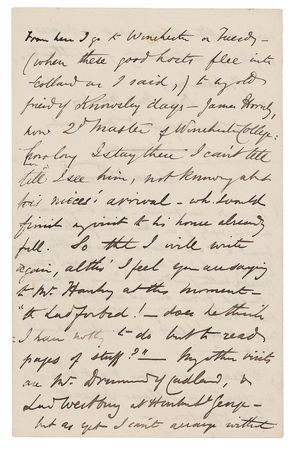 From here I go to Winchester on Tuesday –
(when these good hosts flee into
Scotland as I said,) to an old
friend of Knowsley days – James Hornby,
now 2d Master of Winchester College:
how long I stay there I can't tell
till I see him, not knowing abt
his nieces' arrival – wh. would
finish my visit to his house already
full. So that I will write
again, altho' I feel you are saying
to Mr. at this moment –
"the Lord forbid! – does he think
I have nothing to do but to read
pages of stuff?" – My other visits
are Mr. Drummond Cadland, &
Lord Westbury at Hinton St. George –
but as yet I can't arrange without